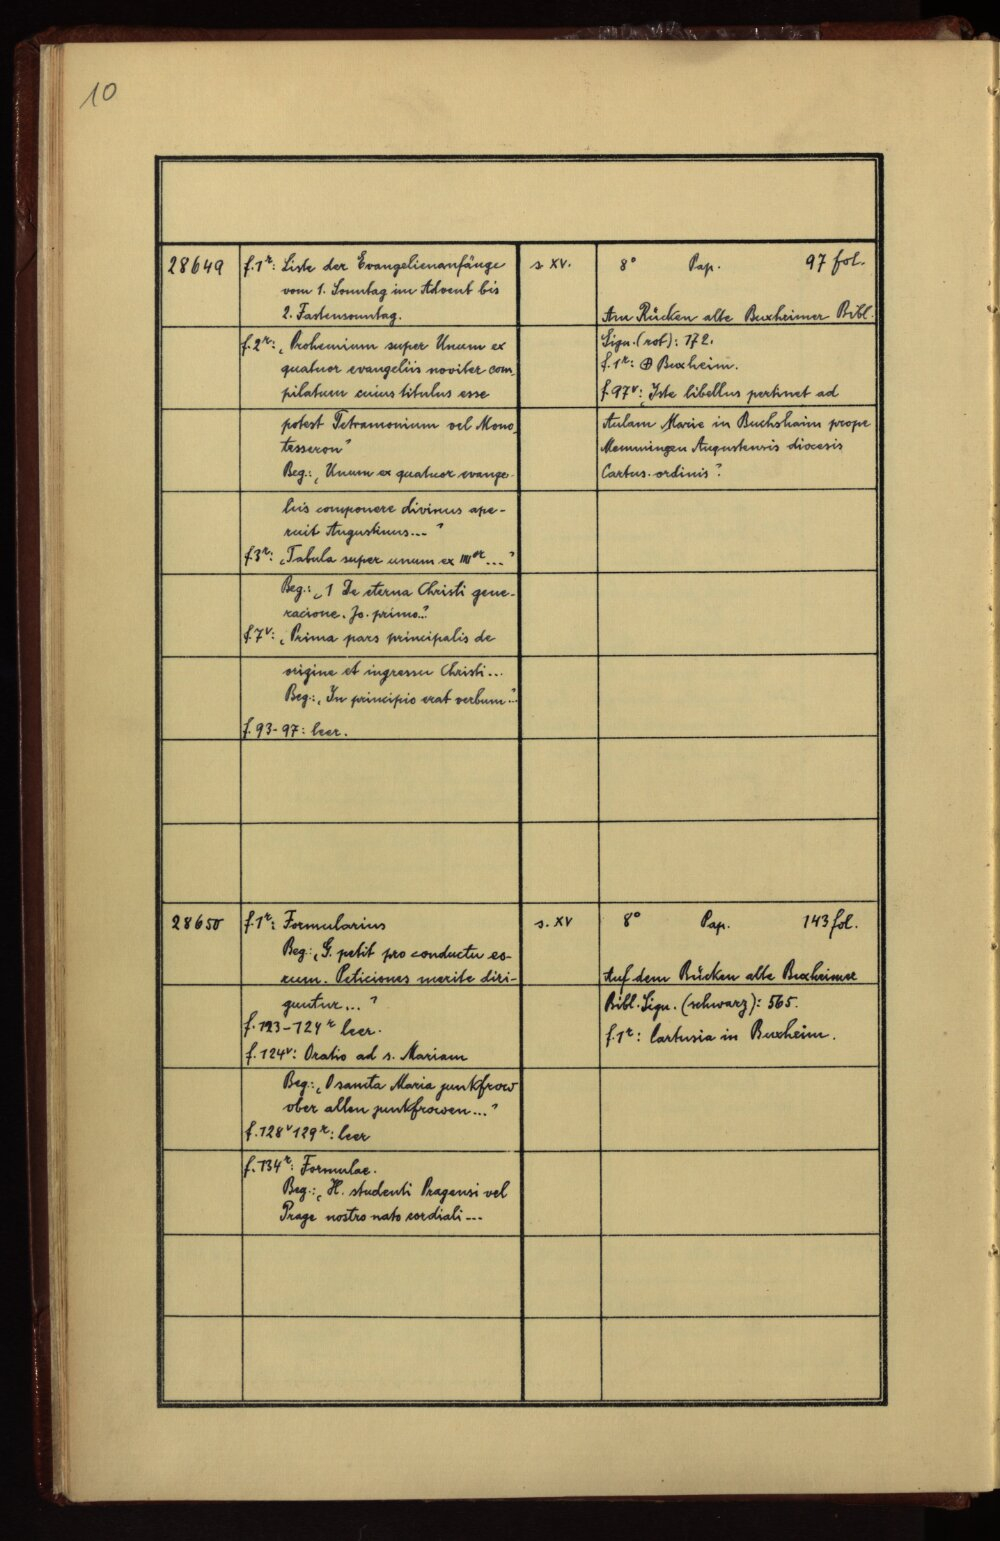 10
28649
f.1r: Liste der Evangelienanfänge
vom 1. Sonntag im Advent bis
2. Fastensonntag.
f.2r: „Prohemium super Unum ex
quatuor evangeliis noviter com-
pilatum cuius titulus esse
potest Tetramonium vel Mono-
tesseron"
Beg.: „Unum ex quatuor evange-
liis componere divinus ape-
ruit Augustinus..."
f.3r: „Tabula super unum ex IIIIor..."
Beg.: „1 De eterna Christi gene-
racione. Jo. primo."
f.7v: „Prima pars principalis de
origine et ingressu Christi...
Beg.: „In principio erat verbum..."
f.93-97: leer.
s. XV.
8° Pap. 97 fol.
Am Rücken alte Buxheimer Bibl.
Sign. (rot): 172.
f.1r: ⊕ Buxheim.
f.97v: „Iste libellus pertinet ad
Aulam Marie in Buchshaim prope
Memmingen Augustensis diocesis
Cartus. ordinis".
28650
f.1r: Formularius
Beg.: „G. petit pro conductu eo-
rum. Peticiones merite diri-
guntur..."
f.123-124r leer.
f.124v: Oratio ad s. Mariam
Beg.: „O sancta Maria junkfrow
ober allen junkfrowen..."
f.128v 129r: leer
f.134r: Formulae.
Beg.: „H. studenti Pragensi vel
Prage nostro nato cordiali...
s. XV
8° Pap. 143 fol.
Auf dem Rücken alte Buxheimer
Bibl. Sign. (schwarz): 565.
f.1r: Cartusia in Buxheim.